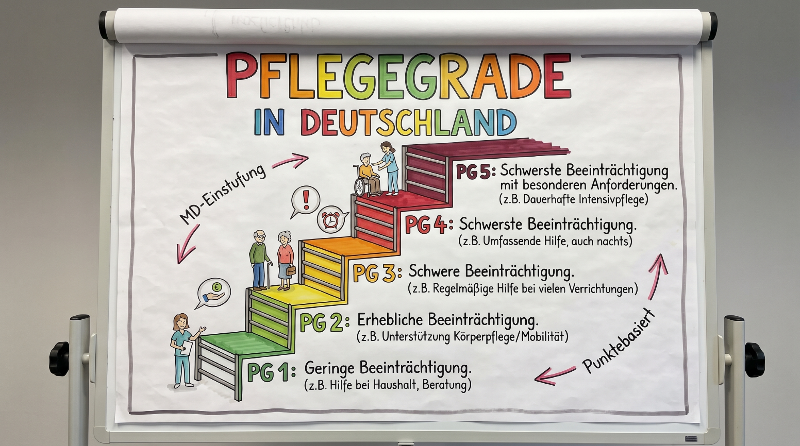 PFLEGEGRADE
IN DEUTSCHLAND
MD-Einstufung
PG 5: Schwerste Beeinträchtigung
mit besonderen Anforderungen.
(z.B. Dauerhafte Intensivpflege)
PG 4: Schwerste Beeinträchtigung.
(z.B. Umfassende Hilfe, auch nachts)
PG 3: Schwere Beeinträchtigung.
(z.B. Regelmäßige Hilfe bei vielen Verrichtungen)
PG 2: Erhebliche Beeinträchtigung.
(z.B. Unterstützung Körperpflege/Mobilität)
PG 1: Geringe Beeinträchtigung.
(z.B. Hilfe bei Haushalt, Beratung)
Punktebasiert
!
€